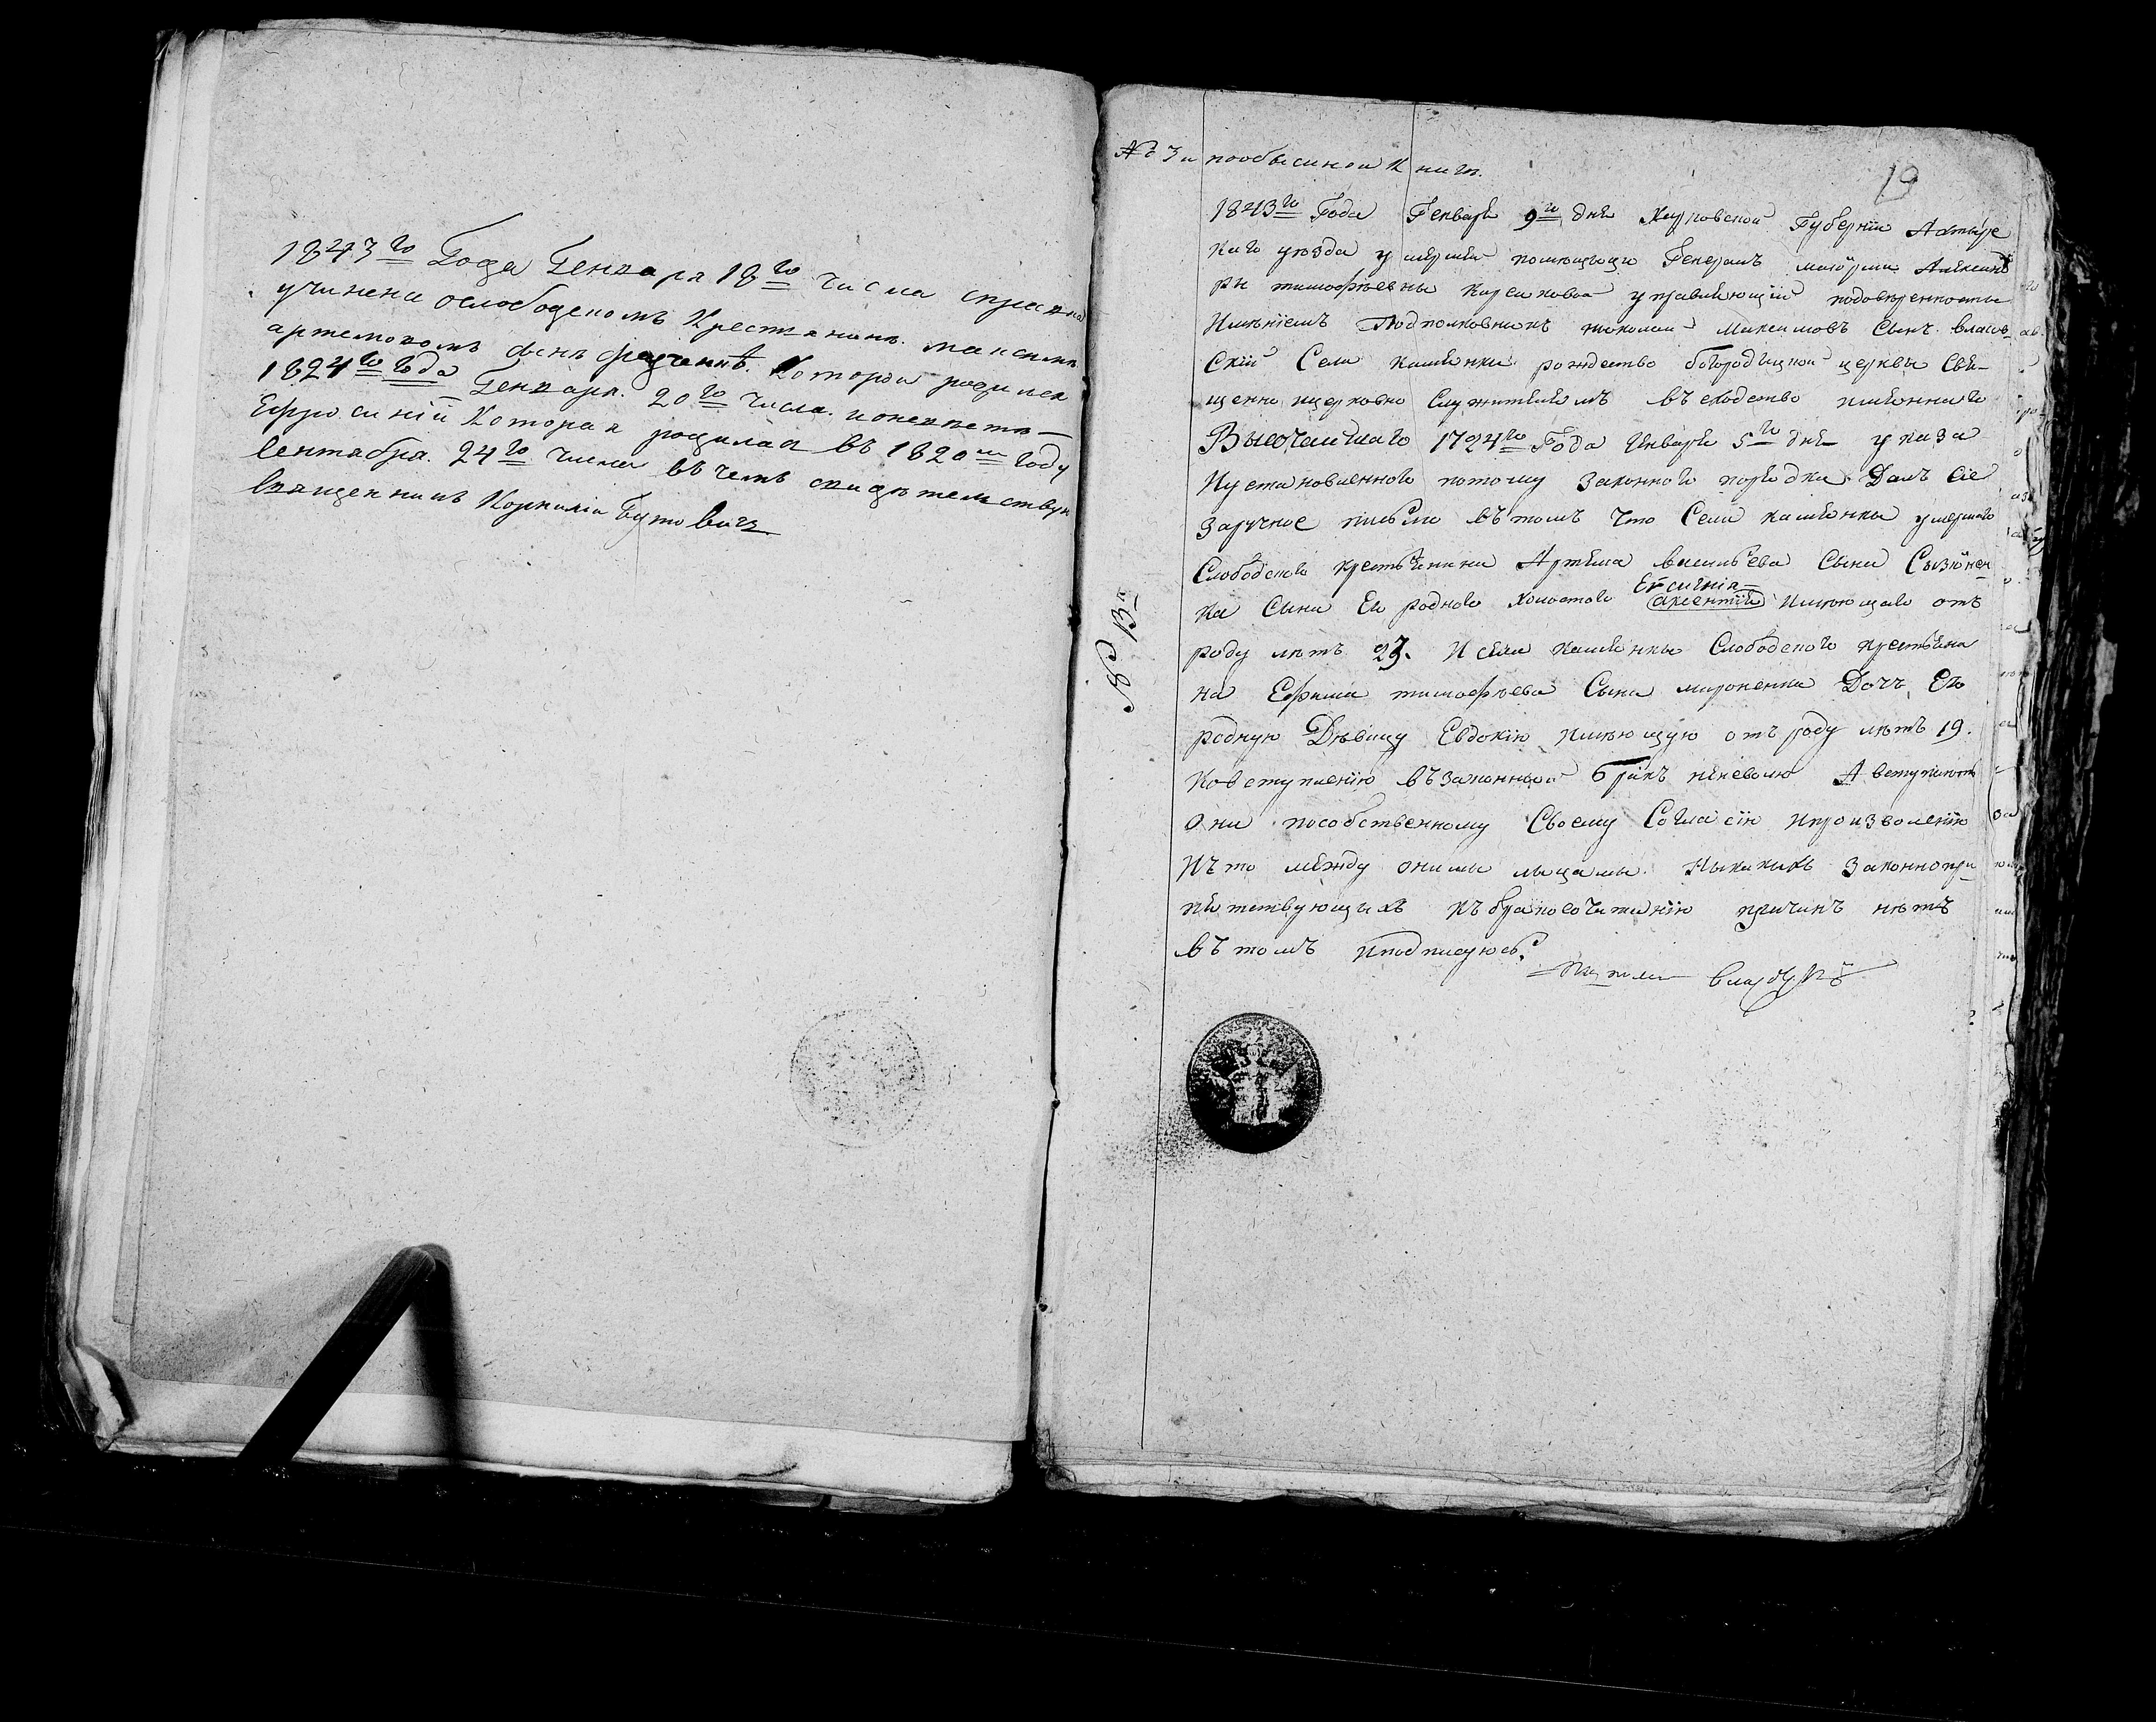 1843го Года Генваря 18го числа справка
учинена ослободеномъ Крестянине максимъ
артемовомъ сыне Которои родился
1824го года Генваря 20го числа и оневесте
Ефросиніи Которая родилась въ 1820м году
Сентября 24го числа въ чемъ свидетельствую
Священникъ Корнилій Бутовичъ
№ 3й пообыскной Книги
19
1843го Года Генваря 9го дня Харьковской Губерніи Ахтырс
каго уезда умершей помещицы Генералъ маіорши Алексанъ
ры тимофѣевны управляющій подоверенности
Имѣніемъ Подполковникъ максимовъ Сынъ власов
скій Села камянки рождество богородицкой церкви Свя
щенно церковно Служителямъ въ сходство имяннаго
Высочайшаго 1724го Года Января 5го дня указа
Иустановленного потому Законного порядка Далъ сіе
заручное письмо въ томъ что Села камянки умершого
Слободского крестьянина Артема васильева Сына
ка Сына Его родного холостого арсентія Имеющаго отъ
роду летъ 23. И села камянки Слободского крестьяни
на Ефима тимофѣева Сына мироненка Дочь Его
родную Девицу Евдокію имеющую отъ роду летъ 19.
Ковступленію въ законный бракъ неневолю А вступаютъ
они пособственному Своему Согласію Ипроизволенію
Ичто между оными лицами Ныкакихъ Законнопре
пятствующихъ къ бракосочитанію причинъ нетъ
въ томъ Иподписуюсь
№ 13й